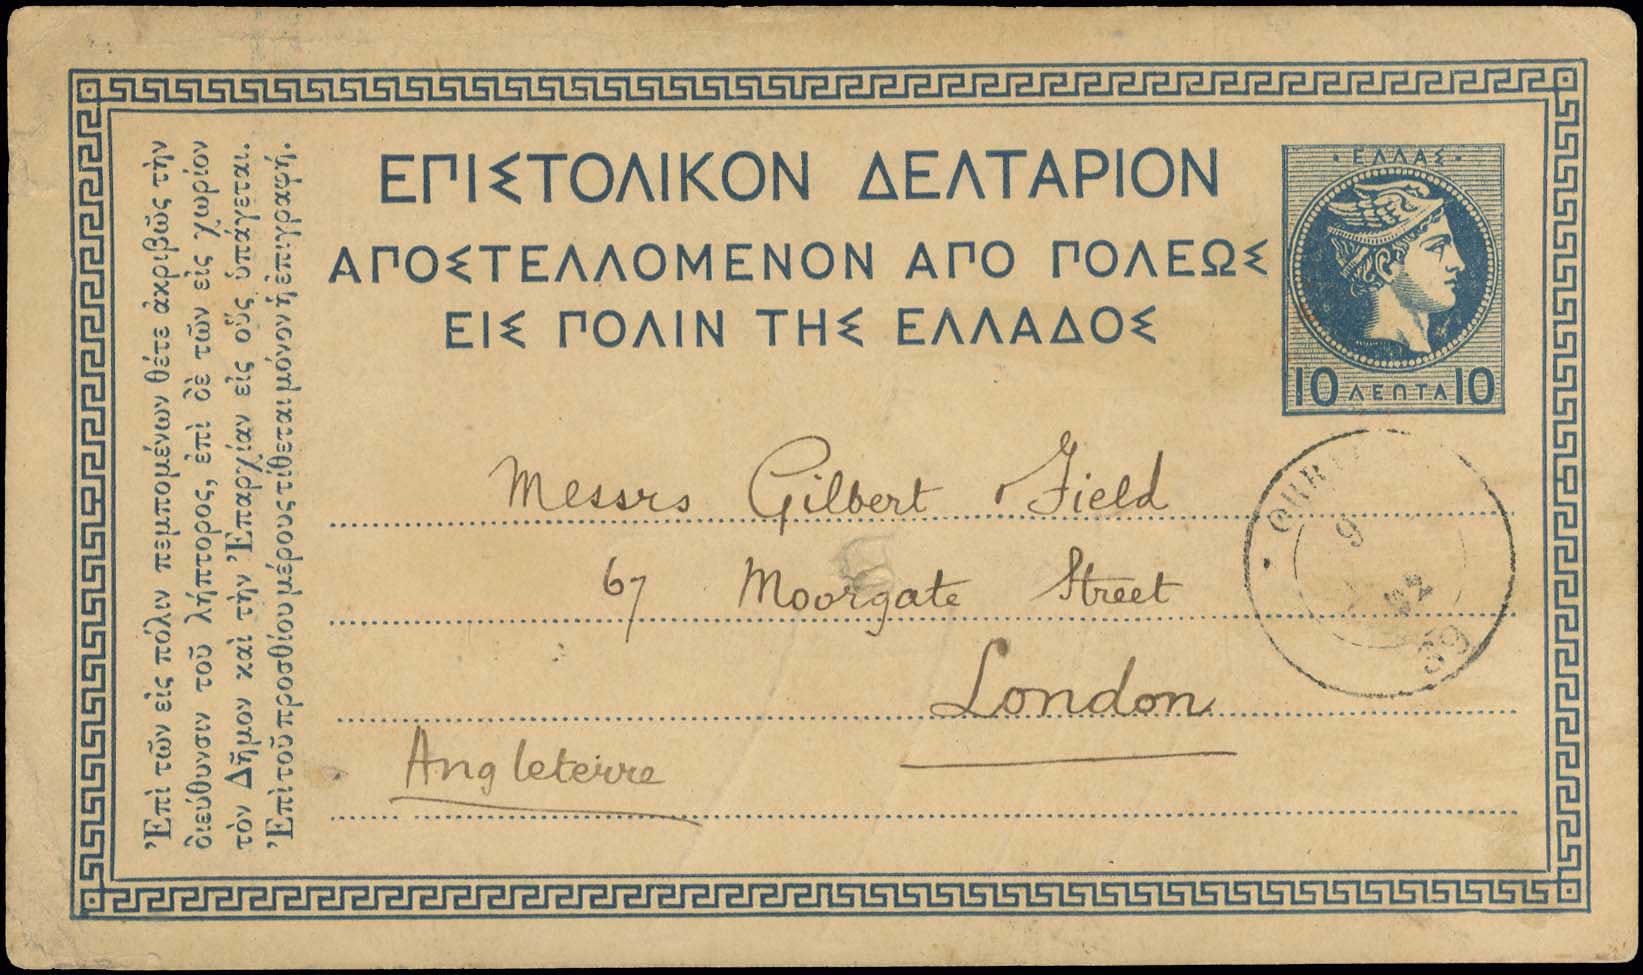 ΕΠΙΣΤΟΛΙΚΟΝ ΔΕΛΤΑΡΙΟΝ
ΑΠΟΣΤΕΛΛΟΜΕΝΟΝ ΑΠΟ ΠΟΛΕΩΣ
ΕΙΣ ΠΟΛΙΝ ΤΗΣ ΕΛΛΑΔΟΣ
Ἐπὶ τῶν εἰς πόλιν πεμπομένων θέτε ἀκριβῶς τὴν
διεύθυνσιν τοῦ λήπτορος, ἐπὶ δὲ τῶν εἰς χωρίον
τὸν Δῆμον καὶ τὴν Ἐπαρχίαν εἰς οὓς ὑπάγεται.
Ἐπὶ τοῦ προσθίου μέρους τίθεται μόνον ἡ ἐπιγραφή.
ΕΛΛΑΣ
10 ΛΕΠΤΑ 10
Messrs Gilbert Field
67 Moorgate Street
London
Angleterre
9